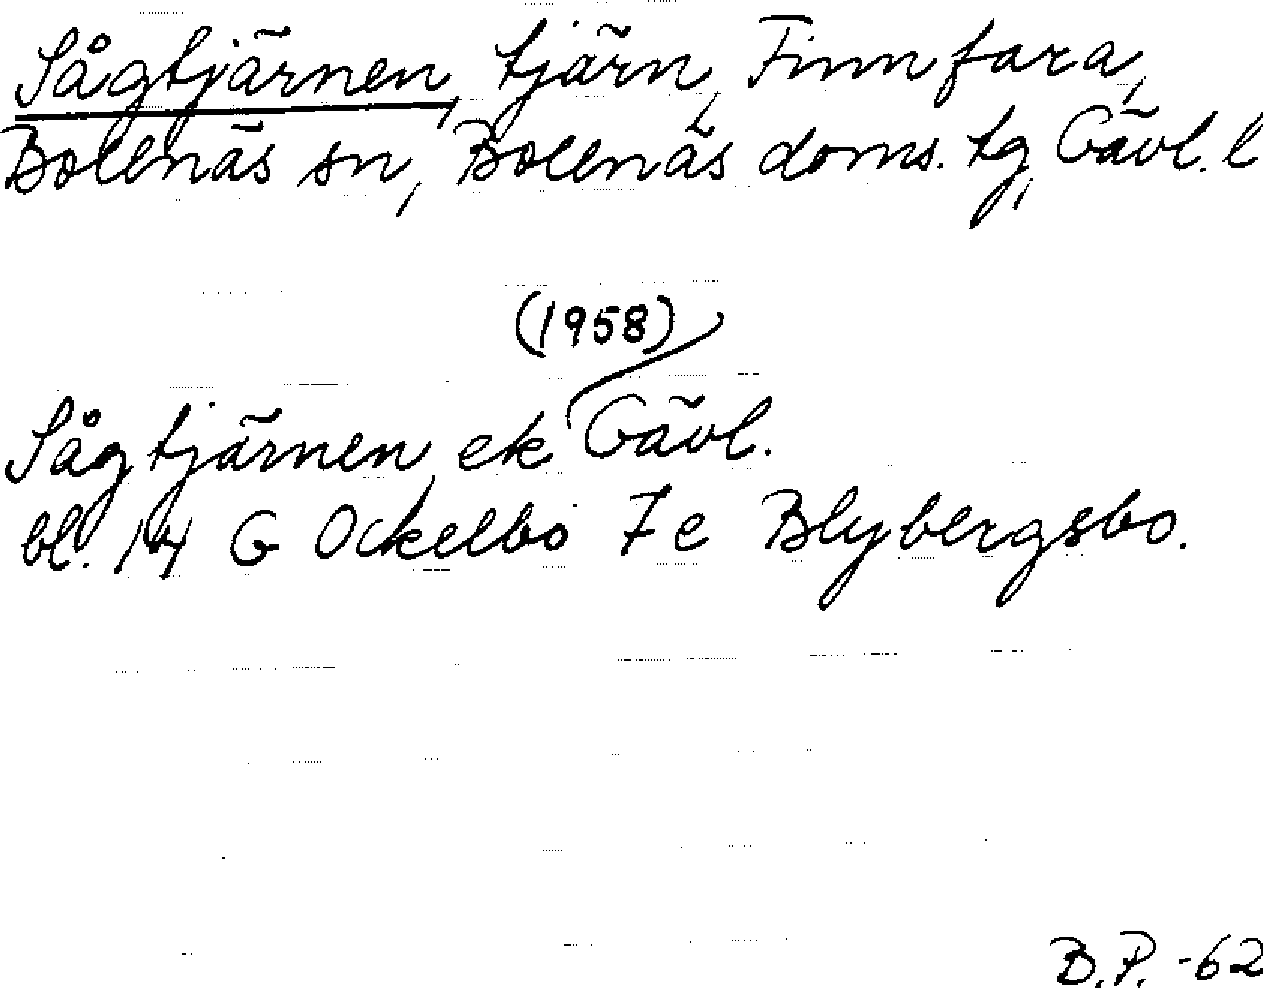 Sågtjärnen, tjärn, Finnfara,
Bollnäs sn, Bollnäs doms. tg, Gävl. l
(1958)
Sågtjärnen, ek Gävl.
bl. 14 G Ockelbo 7 e Blybergsbo.
B.P. -62